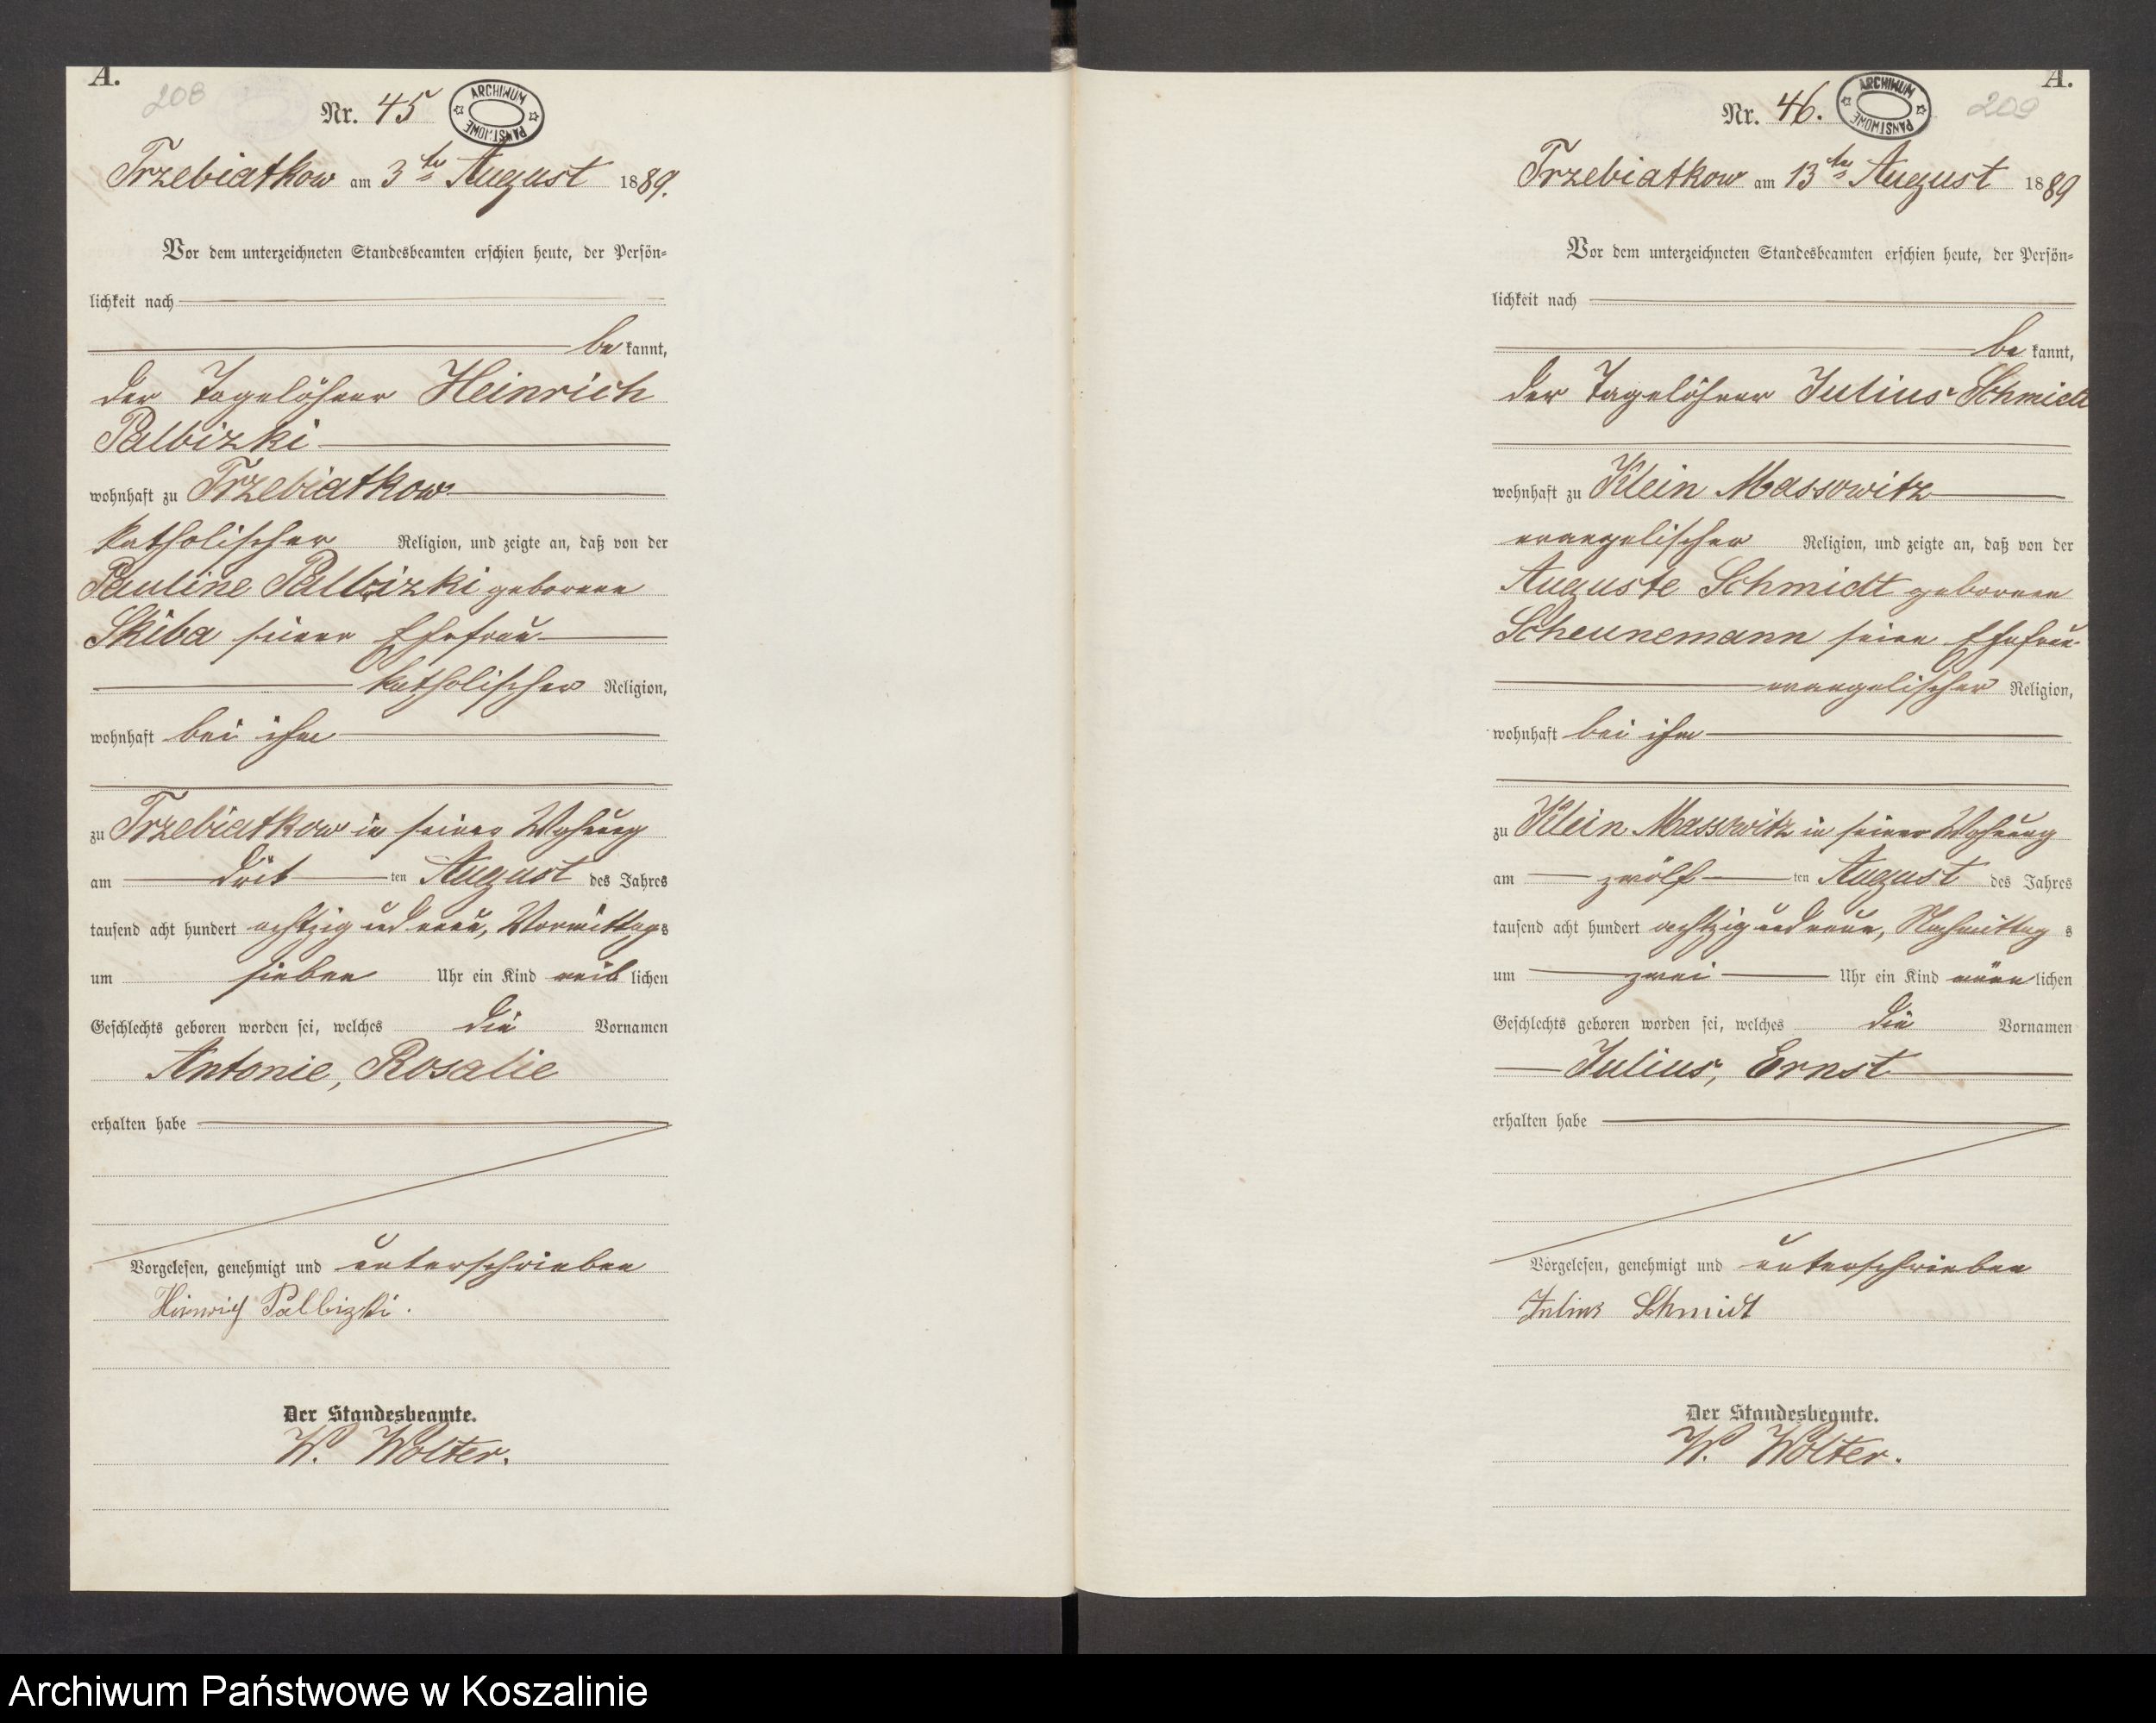 A.
208
Nr. 45
ARCHIWUM PAŃSTWOWE
Trzebiatkow am 3ten August 1889.
Vor dem unterzeichneten Standesbeamten erschien heute, der Persön-
lichkeit nach
be kannt,
der Tagelöhner Heinrich
Palbizki
wohnhaft zu Trzebiatkow
katholischer Religion, und zeigte an, daß von der
Pauline Palbizki geborene
Skiba seiner Ehefrau
katholischer Religion,
wohnhaft bei ihm
zu Trzebiatkow in seiner Wohnung
am drit ten August des Jahres
tausend acht hundert achtzig und neun, Vormittags
um sieben Uhr ein Kind weib lichen
Geschlechts geboren worden sei, welches die Vornamen
Antonie, Rosalie
erhalten habe
Vorgelesen, genehmigt und unterschrieben
Heinrich Palbizki.
Der Standesbeamte.
W. Wolter.
A.
209
Nr. 46.
ARCHIWUM PAŃSTWOWE
Trzebiatkow am 13ten August 1889
Vor dem unterzeichneten Standesbeamten erschien heute, der Persön-
lichkeit nach
be kannt,
der Tagelöhner Julius Schmidt
wohnhaft zu Klein Massowitz
evangelischer Religion, und zeigte an, daß von der
Auguste Schmidt geborenen
Scheunemann seine Ehefrau
evangelischer Religion,
wohnhaft bei ihm
zu Klein Massowitz in seiner Wohnung
am zwölf ten August des Jahres
tausend acht hundert achtzig und neun, Nachmittag s
um zwei Uhr ein Kind männ lichen
Geschlechts geboren worden sei, welches die Vornamen
Julius, Ernst
erhalten habe
Vorgelesen, genehmigt und unterschrieben
Julius Schmidt
Der Standesbeamte.
W. Wolter.
Archiwum Państwowe w Koszalinie